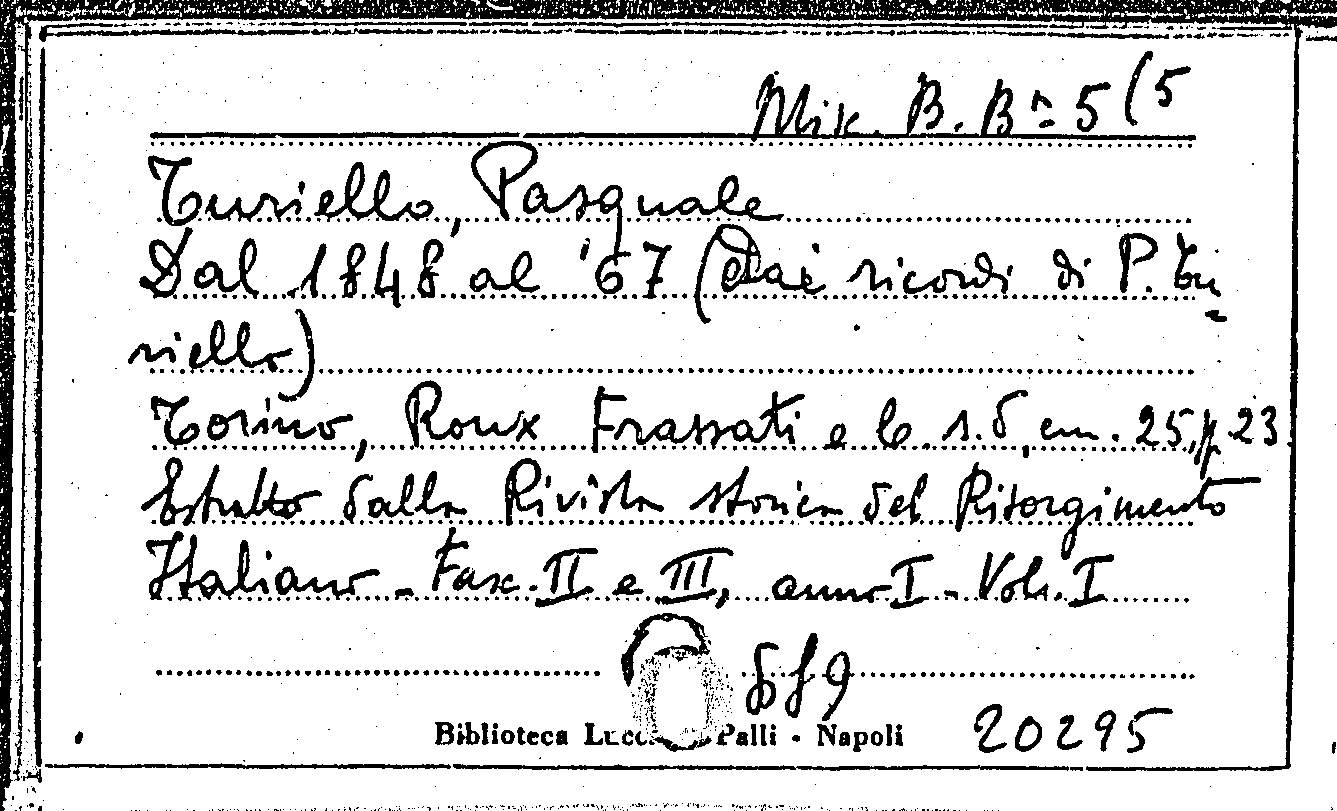 Misc. B. Bª 5 (5
Turiello, Pasquale
Dal 1848 al '67 (Dai ricordi di P. Tu=
riello)
Torino, Roux Frassati e Co. s.d, cm. 25, p. 23.
Estratto dalla Rivista storica del Risorgimento
Italiano - Fasc. II e III, anno I - Vol. I
Biblioteca Palli - Napoli
20295